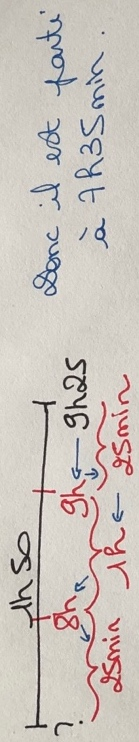 1h50
? 8h 9h 9h25
25min 1h 25min
Donc il est parti
à 7h35min.